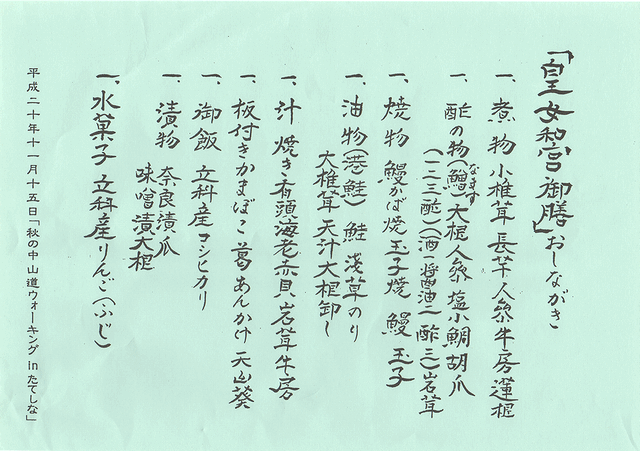 「皇女和宮御膳」おしながき
一、煮物 小椎茸 長芋 人参 牛房 蓮根
一、酢の物(鱠)大根 人参 塩小鯛 胡瓜
なます
(一二三酢)(酒一醤油二酢三)岩茸
一、焼物 鰻かば焼 玉子焼 鰻 玉子
一、油物(巻鮭) 鮭 浅草のり
大椎茸 天汁 大根卸し
一、汁 焼き有頭海老 赤貝 岩茸 牛房
一、板付きかまぼこ 葛あんかけ 天山葵
一、御飯 立科産コシヒカリ
一、漬物 奈良漬瓜
味噌漬大根
一、水菓子 立科産りんご(ふじ)
平成二十年十一月十五日「秋の中山道ウォーキング in たてしな」